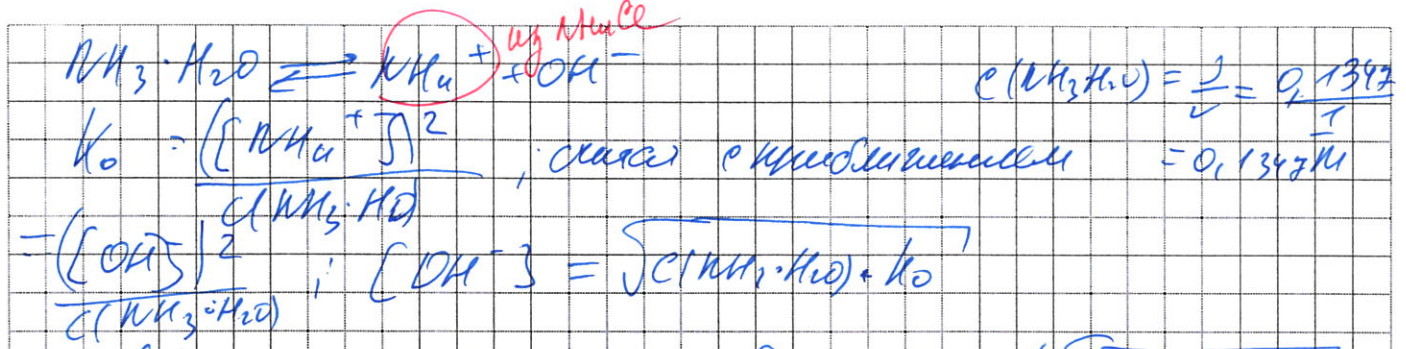 из NH₄Cl
NH₃·H₂O ⇄ NH₄⁺ + OH⁻
C(NH₃H₂O) = ν/V = 0,1347/1
= 0,1347 М
K₀ = ([NH₄⁺])²/C(NH₃·H₂O) , считая с приближением
= ([OH⁻])²/C(NH₃·H₂O) ; [OH⁻] = √C(NH₃·H₂O)·K₀